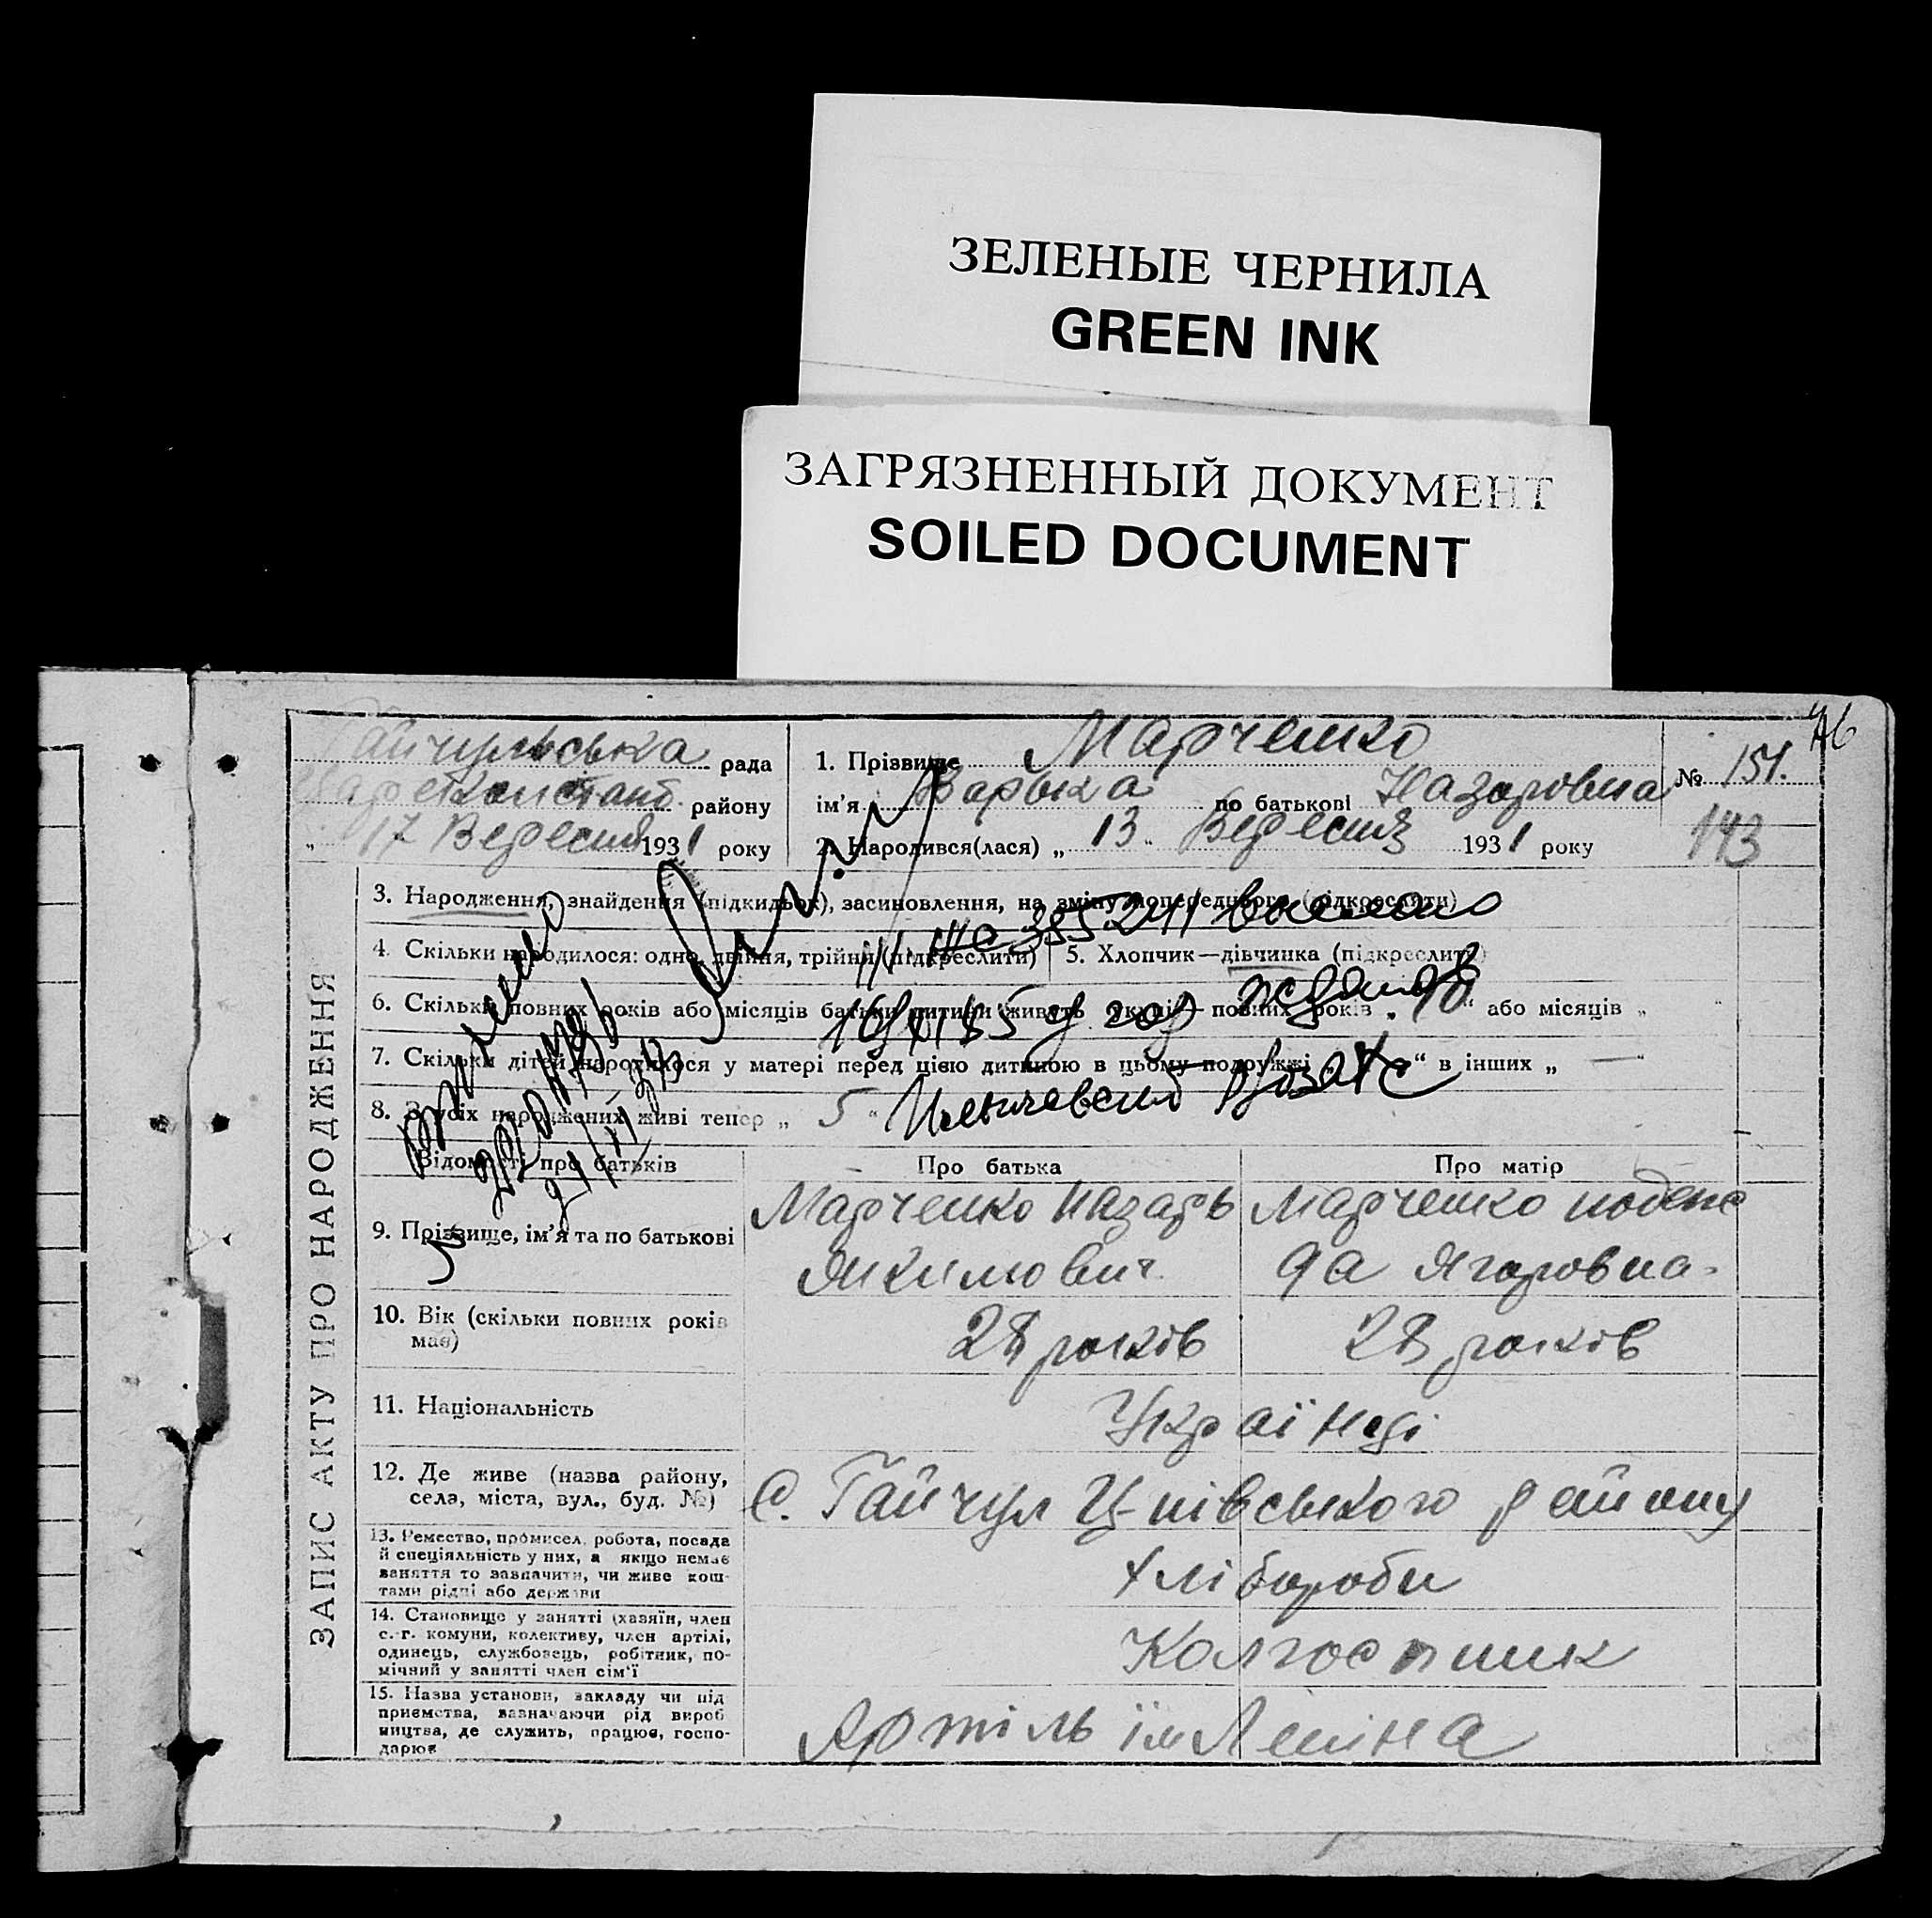 ЗЕЛЕНЫЕ ЧЕРНИЛА
GREEN INK
ЗАГРЯЗНЕННЫЙ ДОКУМЕНТ
SOILED DOCUMENT
46
Гайчульська рада
району
„ 17 Вересня 1931 року
1. Прізвище Марченко
ім'я Варька по батькові Назаровна
2. Народився(лася) „ 13 „ Вересня 1931 року
№ 151.
143
ЗАПИС АКТУ ПРО НАРОДЖЕННЯ
3. Народження, знайдення (підкидьок), засиновлення, на зміну попереднього (підкреслити)
4. Скільки народилося: одно, двійня, трійня (підкреслити) 5. Хлопчик—дівчинка (підкреслити)
6. Скільки повних років або місяців батьки дитини живуть укупі— повних років „ 10 “ або місяців „
7. Скільки дітей народилося у матері перед цією дитиною в цьому подружжі „ “ в інших „ — “
8. З усіх народжених живі тепер „ 5 “
Відомості про батьків Про батька Про матір
9. Прізвище, ім'я та по батькові
Марченко Назарь
Якимович
Марченко
Ягоровна
10. Вік (скільки повних років має)
28 років 28 років
11. Національність
Українці
12. Де живе (назва району, села, міста, вул., буд. №)
С. Гайчул Ц-нівського району
13. Ремество, промисел, робота, посада й спеціяльність у них, а якщо немає заняття то зазначити, чи живе коштами рідні або держави
Хлібороби
14. Становище у занятті (хазяїн, член с.-г. комуни, колективу, член артілі, одинець, службовець, робітник, помічний у занятті член сім'ї
Колгоспник
15. Назва установи, закладу чи підприємства, зазначаючи рід виробництва, де служить, працює, господарює
Артіль ім Леніна